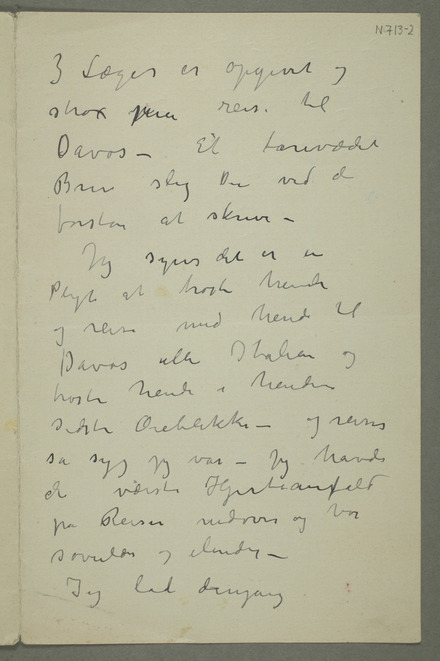 N-713-2
3 Læger er opgivet og
strax maa reise til
Davos – Et tarevædet
Brev slig Du ved de
forstaar at skrive –
Jeg synes det er en
Pligt at trøste hende
og reise med hende til
Davos eller Italien og
trøste hende i hendes
sidste Øieblikke – og reiser
så syg jeg var – Jeg havde
de værste Hjerteanfald
på Reisen nedover og var
søvnløs og elendig –
Jeg lod dengang